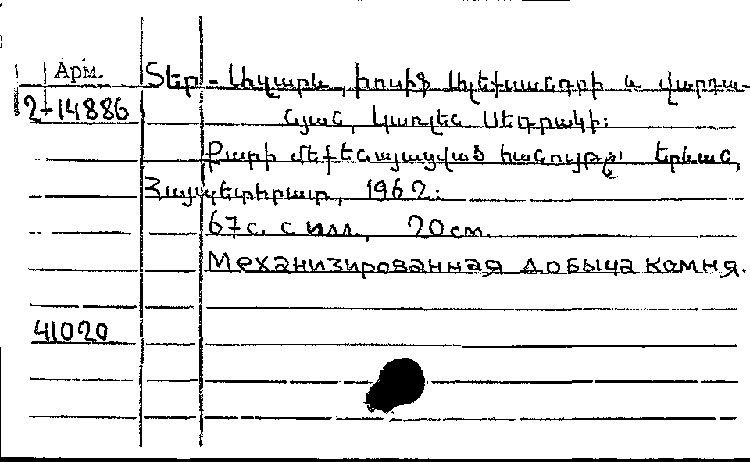 Арм.
2-14886
Տեր-Ազարև, Իոսիֆ Ալեքսանդրի և Վարդա-
նյան, Կառլեն Սեդրակի:
Քարի մեքենայացված հանույթը: Երևան,
Հայպետհրատ, 1962:
67 с. с илл., 20 см.
Механизированная добыча камня.
41020